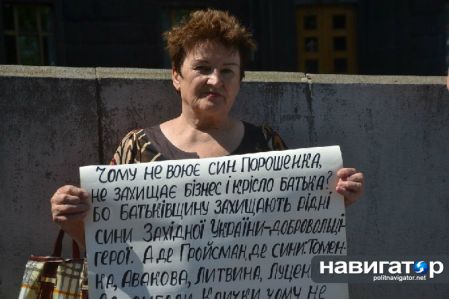 ЧОМУ НЕ ВОЮЄ СИН ПОРОШЕНКА,
НЕ ЗАХИЩАЄ БІЗНЕС І КРІСЛО БАТЬКА?
БО БАТЬКІВЩИНУ ЗАХИЩАЮТЬ РІДНІ
СИНИ ЗАХІДНОЇ УКРАЇНИ-ДОБРОВОЛЬЦІ
ГЕРОЇ. А ДЕ ГРОЙСМАН, ДЕ СИНИ: ТОМЕН-
КА, АВАКОВА, ЛИТВИНА, ЛУЦЕН
ЧОМУ НЕ
НАВИГАТОР
politnavigator.net